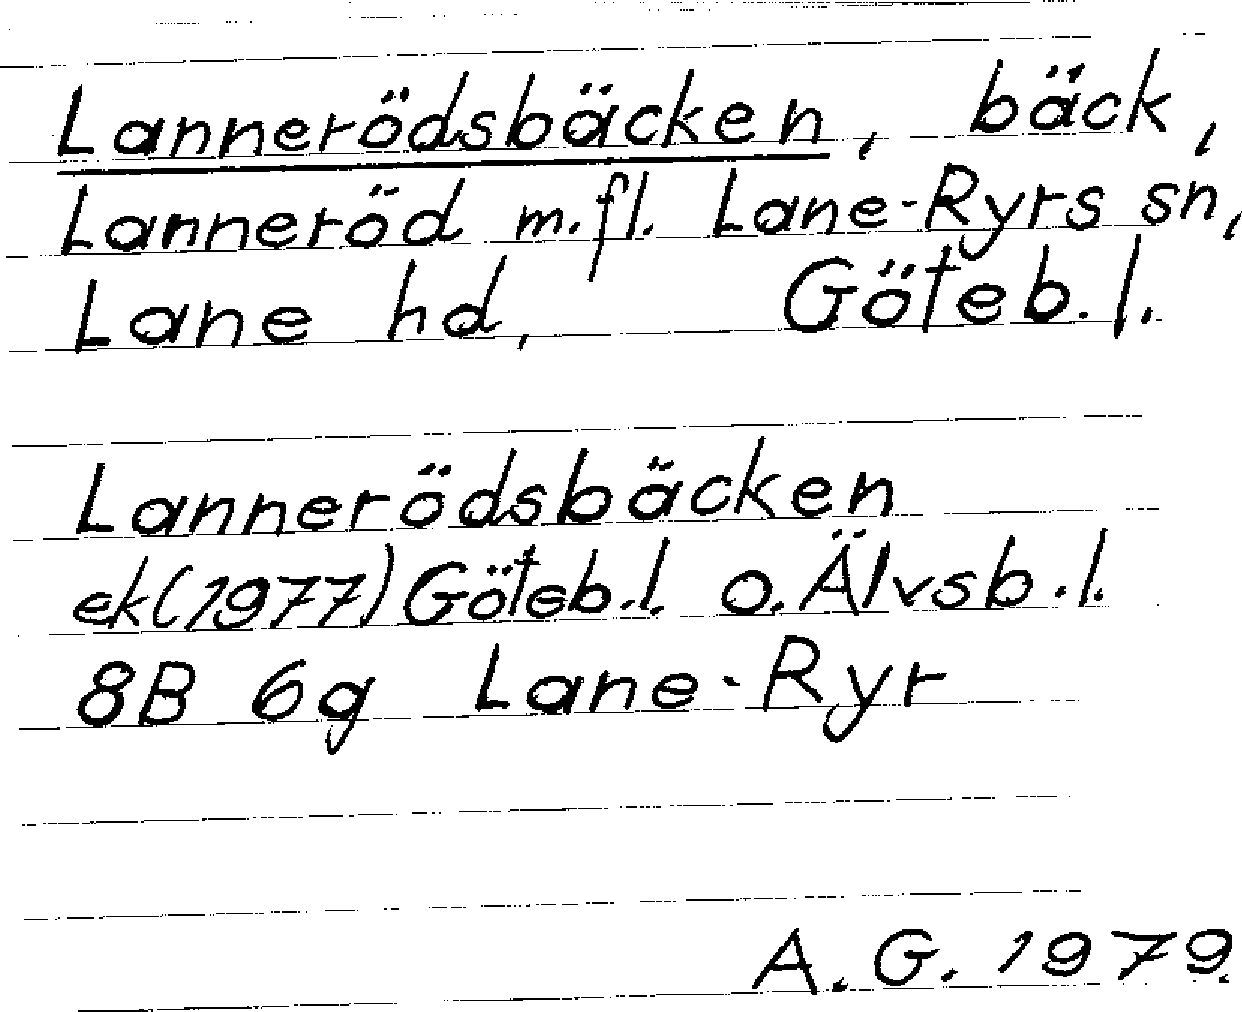 Lannerödsbäcken, bäck,
Lanneröd m.fl. Lane-Ryrs sn,
Lane hd, Göteb. l.
Lannerödsbäcken
ek(1977) Göteb.l. o. Älvsb.l.
8B 6g Lane-Ryr
A.G. 1979.